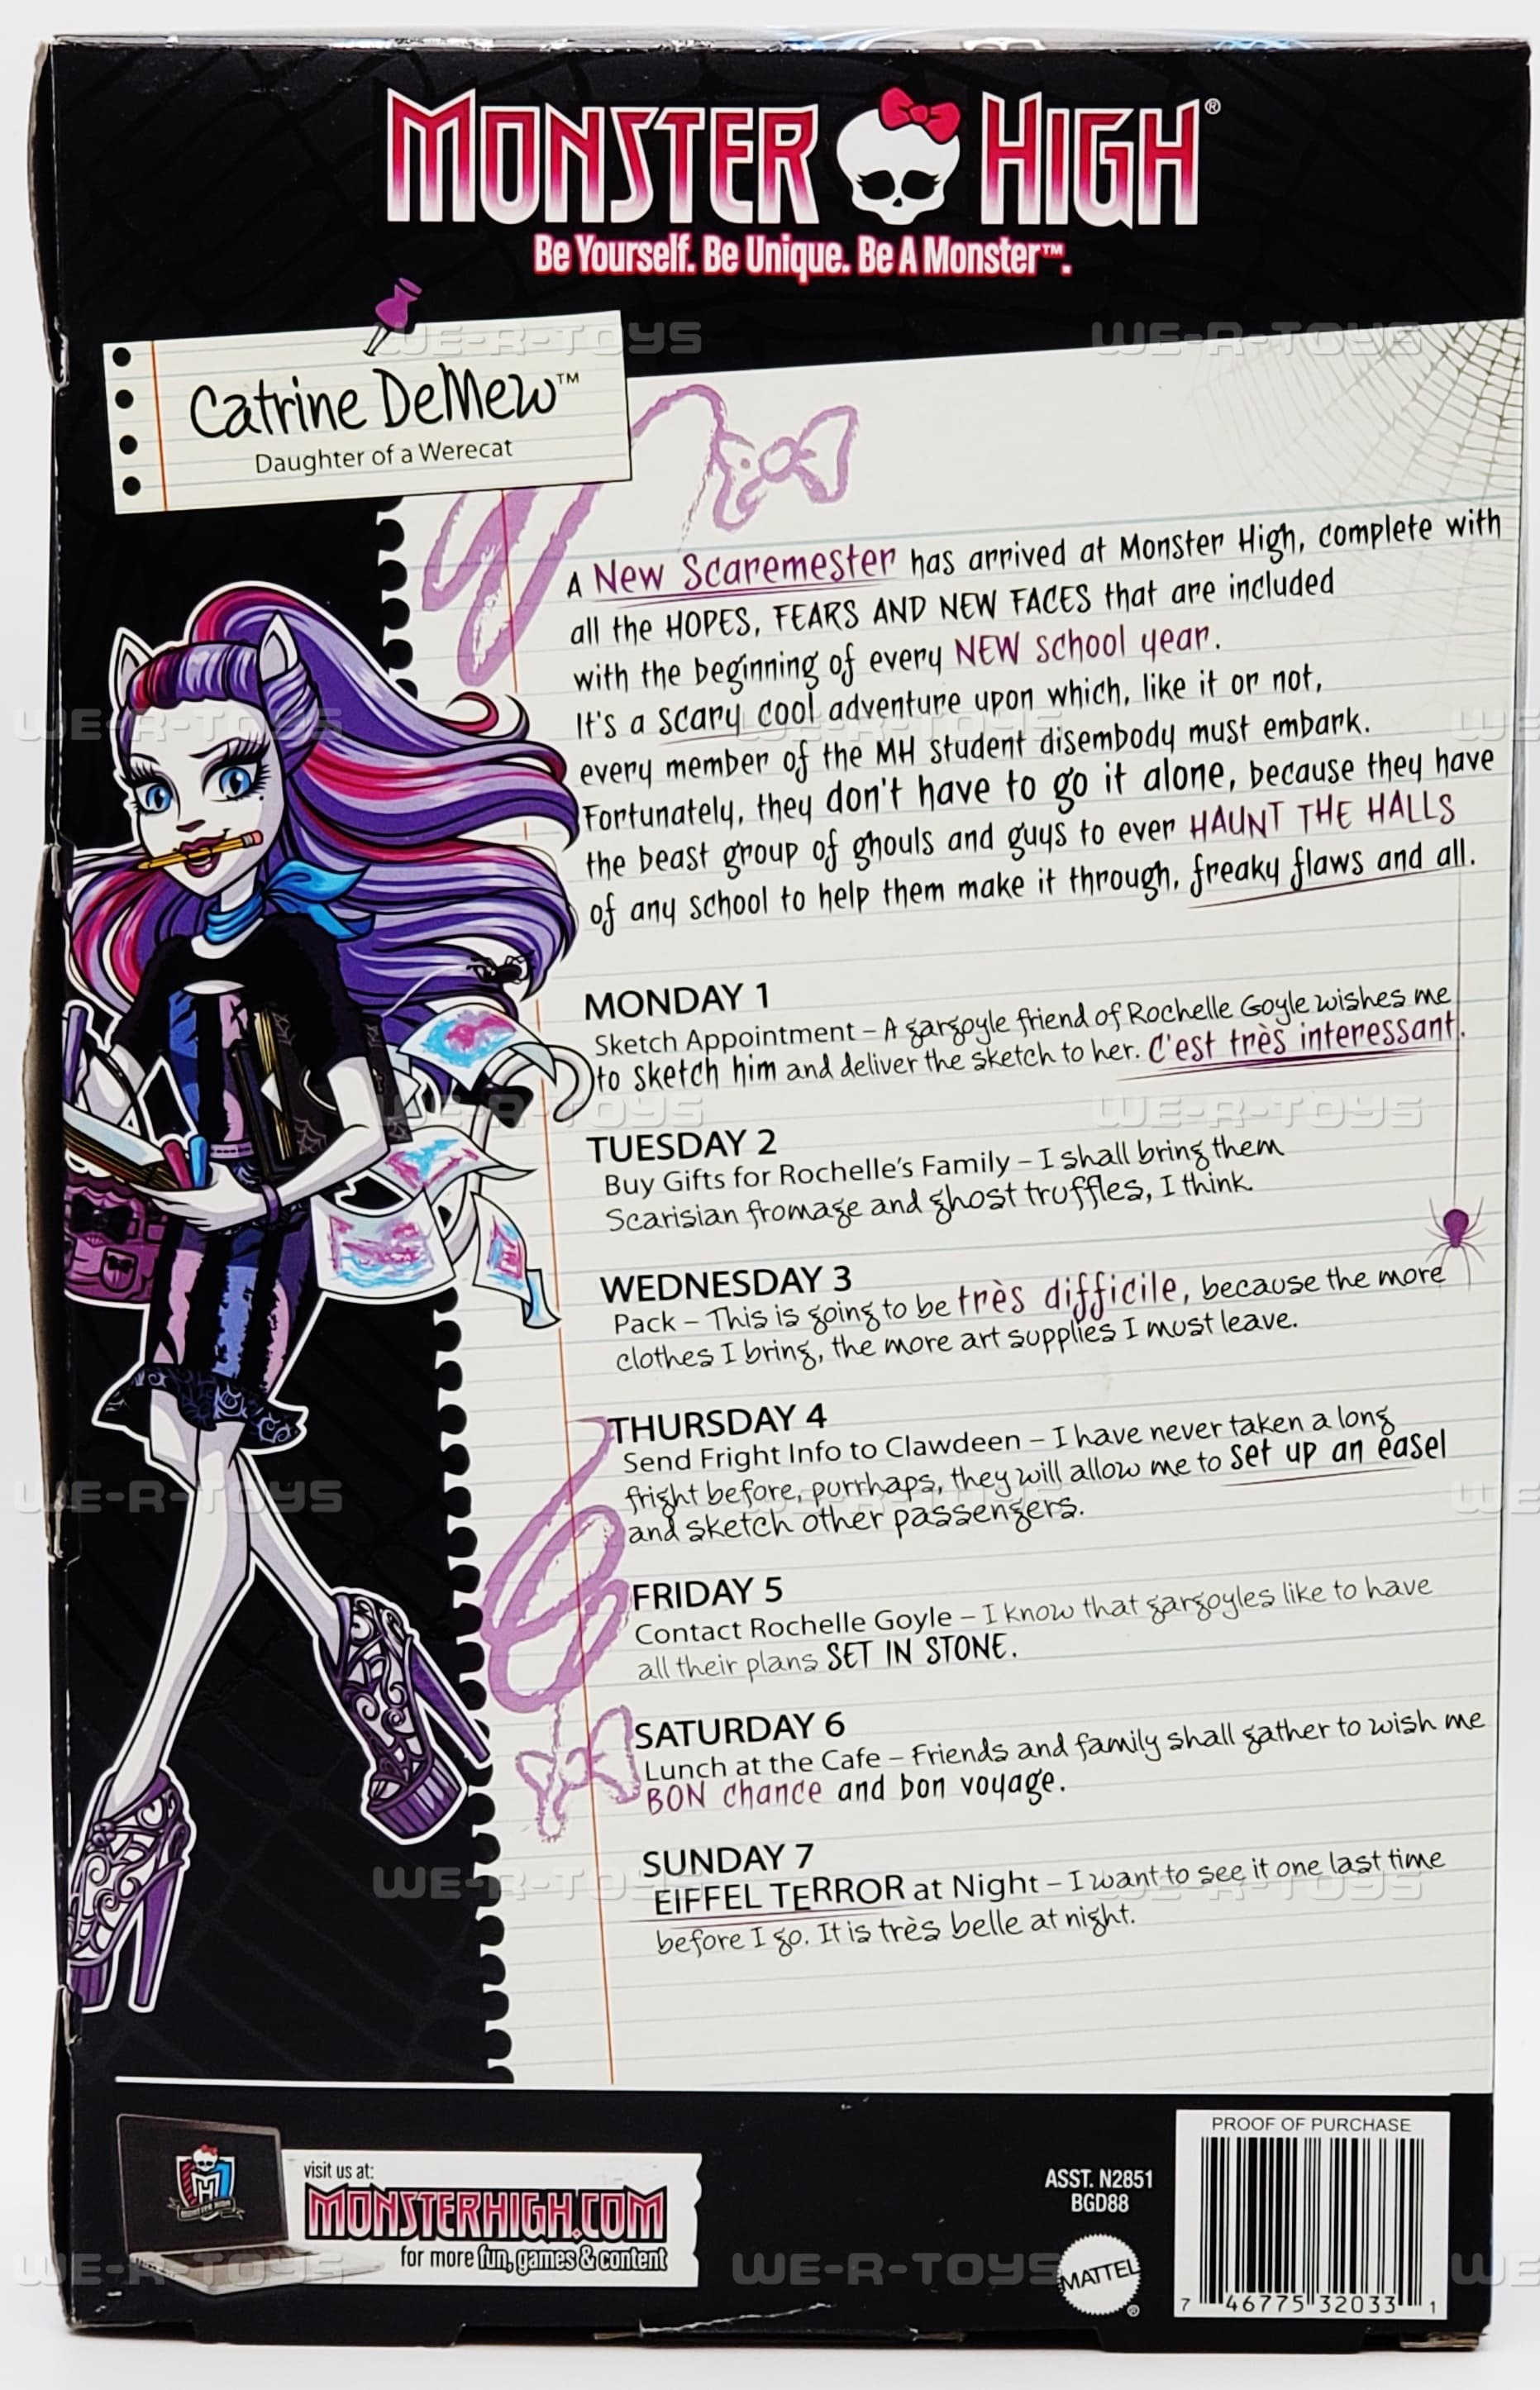 MONSTER HIGH®
Be Yourself. Be Unique. Be A Monster™.
Catrine DeMew™
Daughter of a Werecat
A New Scaremester has arrived at Monster High, complete with
all the HOPES, FEARS AND NEW FACES that are included
with the beginning of every NEW school year.
It's a scary cool adventure upon which, like it or not,
every member of the MH student disembody must embark.
Fortunately, they don't have to go it alone, because they have
the beast group of ghouls and guys to ever HAUNT THE HALLS
of any school to help them make it through, freaky flaws and all.
MONDAY 1
Sketch Appointment – A gargoyle friend of Rochelle Goyle wishes me
to sketch him and deliver the sketch to her. C'est très interessant.
TUESDAY 2
Buy Gifts for Rochelle's Family – I shall bring them
Scarisian fromage and ghost truffles, I think.
WEDNESDAY 3
Pack – This is going to be très difficile, because the more
clothes I bring, the more art supplies I must leave.
THURSDAY 4
Send Fright Info to Clawdeen – I have never taken a long
fright before, purrhaps, they will allow me to set up an easel
and sketch other passengers.
FRIDAY 5
Contact Rochelle Goyle – I know that gargoyles like to have
all their plans SET IN STONE.
SATURDAY 6
Lunch at the Cafe – Friends and family shall gather to wish me
BON chance and bon voyage.
SUNDAY 7
EIFFEL TERROR at Night – I want to see it one last time
before I go. It is très belle at night.
visit us at:
MONSTERHIGH.COM
for more fun, games & content
ASST. N2851
BGD88
MATTEL®
PROOF OF PURCHASE
7 46775 32033 1
WE-R-TOYS